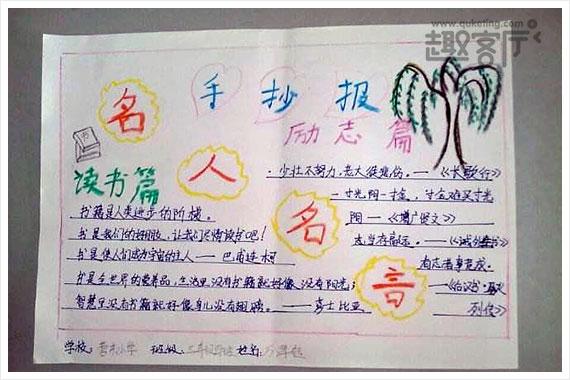 www.quketing.com
趣客厅
手抄报
名人名言
励志篇
读书篇
少壮不努力,老大徒悲伤。——《长歌行》
一寸光阴一寸金,寸金难买寸光
阴——《增广贤文》
志当存高远。——《诫外甥书》
有志者事竟成。
列传》
书籍是人类进步的阶梯。
书是我们的好朋友,让我们尽情读书吧!
书是使人们成为宇宙的主人——巴甫连柯
书是全世界的营养品,生活里没有书籍就好像没有阳光;
智慧里没有书籍就好像鸟儿没有翅膀。——莎士比亚
学校: 小学 班级: 三年级 姓名: